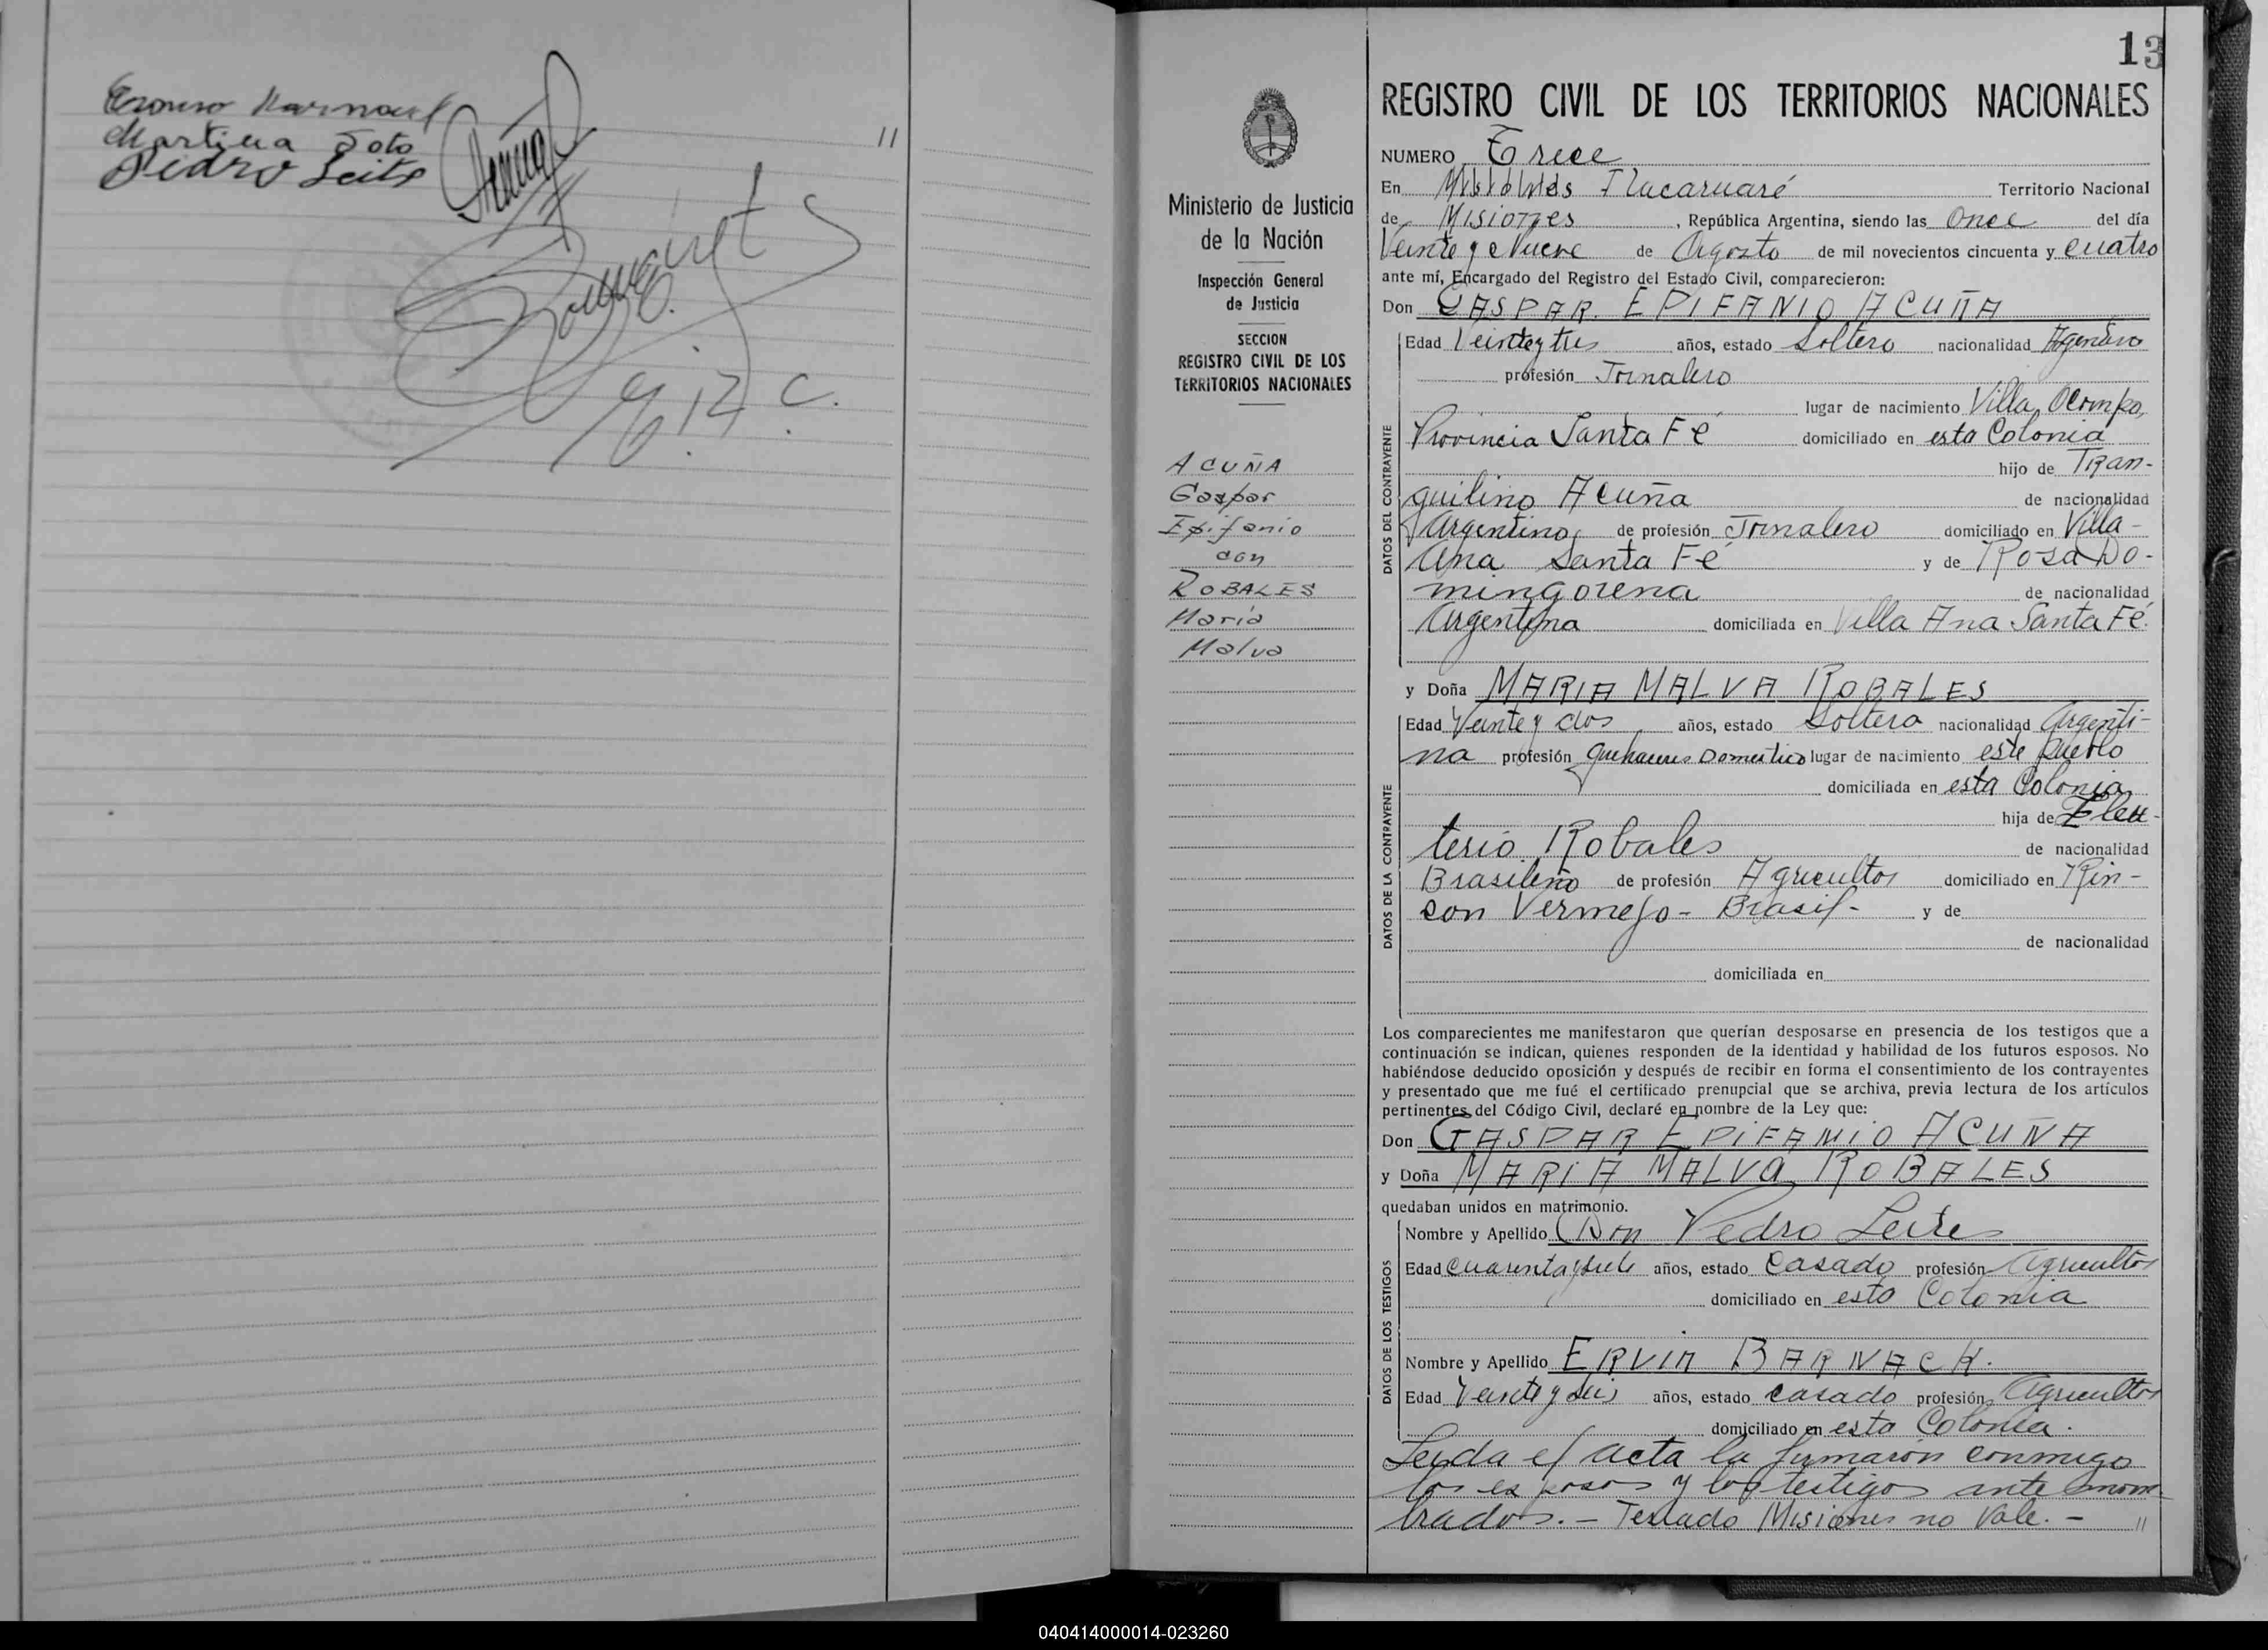 Martina Soto
Pedro Leite
11
13
REGISTRO CIVIL DE LOS TERRITORIOS NACIONALES
NUMERO Trece
En Misiones Itacaruaré Territorio Nacional
de Misiones, República Argentina, siendo las once del día
Veinte y Nueve de Agosto de mil novecientos cincuenta y cuatro
ante mí, Encargado del Registro del Estado Civil, comparecieron:
Don GASPAR EPIFANIO ACUÑA
Edad Veinte y tres años, estado Soltero nacionalidad Agentino
profesión Jornalero
lugar de nacimiento Villa Ocampo,
Provincia Santa Fé domiciliado en esta Colonia
hijo de Tran-
quilino Acuña de nacionalidad
Argentino, de profesión Jornalero domiciliado en Villa-
Ana Santa Fé y de Rosa Do-
mingorena de nacionalidad
Argentina domiciliada en Villa Ana Santa Fé.
y Doña MARIA MALVA ROBALES
Edad Veinte y dos años, estado Soltera nacionalidad Argenti-
na profesión quehaceres Domestico lugar de nacimiento este pueblo
domiciliada en esta Colonia
hija de Eleu-
terio Robales de nacionalidad
Brasileño de profesión Agricultor domiciliado en Rin-
con Vermejo - Brasil - y de
de nacionalidad
domiciliada en
DATOS DEL CONTRAYENTE
DATOS DE LA CONTRAYENTE
Los comparecientes me manifestaron que querían desposarse en presencia de los testigos que a
continuación se indican, quienes responden de la identidad y habilidad de los futuros esposos. No
habiéndose deducido oposición y después de recibir en forma el consentimiento de los contrayentes
y presentado que me fué el certificado prenupcial que se archiva, previa lectura de los artículos
pertinentes del Código Civil, declaré en nombre de la Ley que:
Don GASPAR EPIFANIO ACUÑA
y Doña MARIA MALVA ROBALES
quedaban unidos en matrimonio.
Nombre y Apellido Don Pedro Leite
Edad Cuarenta y siete años, estado Casado profesión Agricultor
domiciliado en esta Colonia
Nombre y Apellido ERVIN BARNACK.
Edad Veinte y seis años, estado casado profesión Agricultor
domiciliado en esta Colonia.
DATOS DE LOS TESTIGOS
Leída el acta la firmaron conmigo
los esposos y los testigos ante nom-
brados. - Testado Misiones no Vale. - 11
Ministerio de Justicia
de la Nación
Inspección General
de Justicia
SECCION
REGISTRO CIVIL DE LOS
TERRITORIOS NACIONALES
ACUÑA
Gaspar
Epifanio
con
ROBALES
María
Malva
040414000014-023260